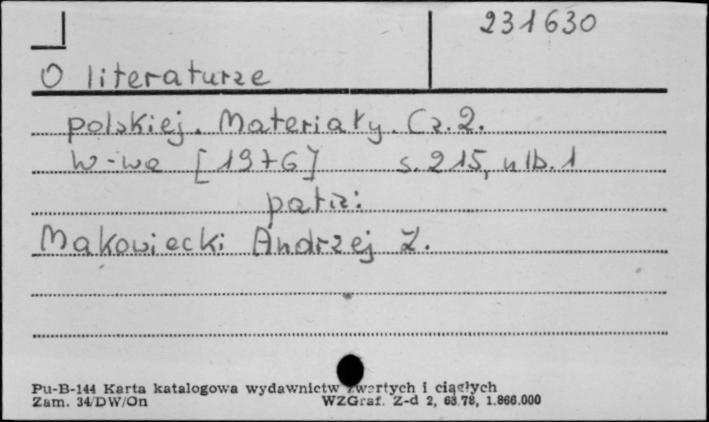 231630
O literaturze
polskiej. Materiały. Cz. 2.
W-wa [1976] s. 215, nlb. 1
patrz:
Makowiecki Andrzej Z.
Pu-B-144 Karta katalogowa wydawnictw zwartych i ciągłych
Zam. 34/DW/On WZGraf. Z-d 2, 63.78, 1.866.000